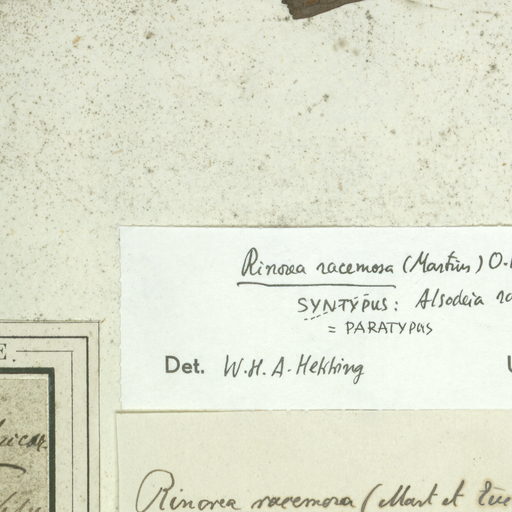 Rinorea racemosa (Martius) O.
SYNTYPUS: Alsodeia
= PARATYPUS
Det. W.H.A. Hekking
E.
Rinorea racemosa (Mart et